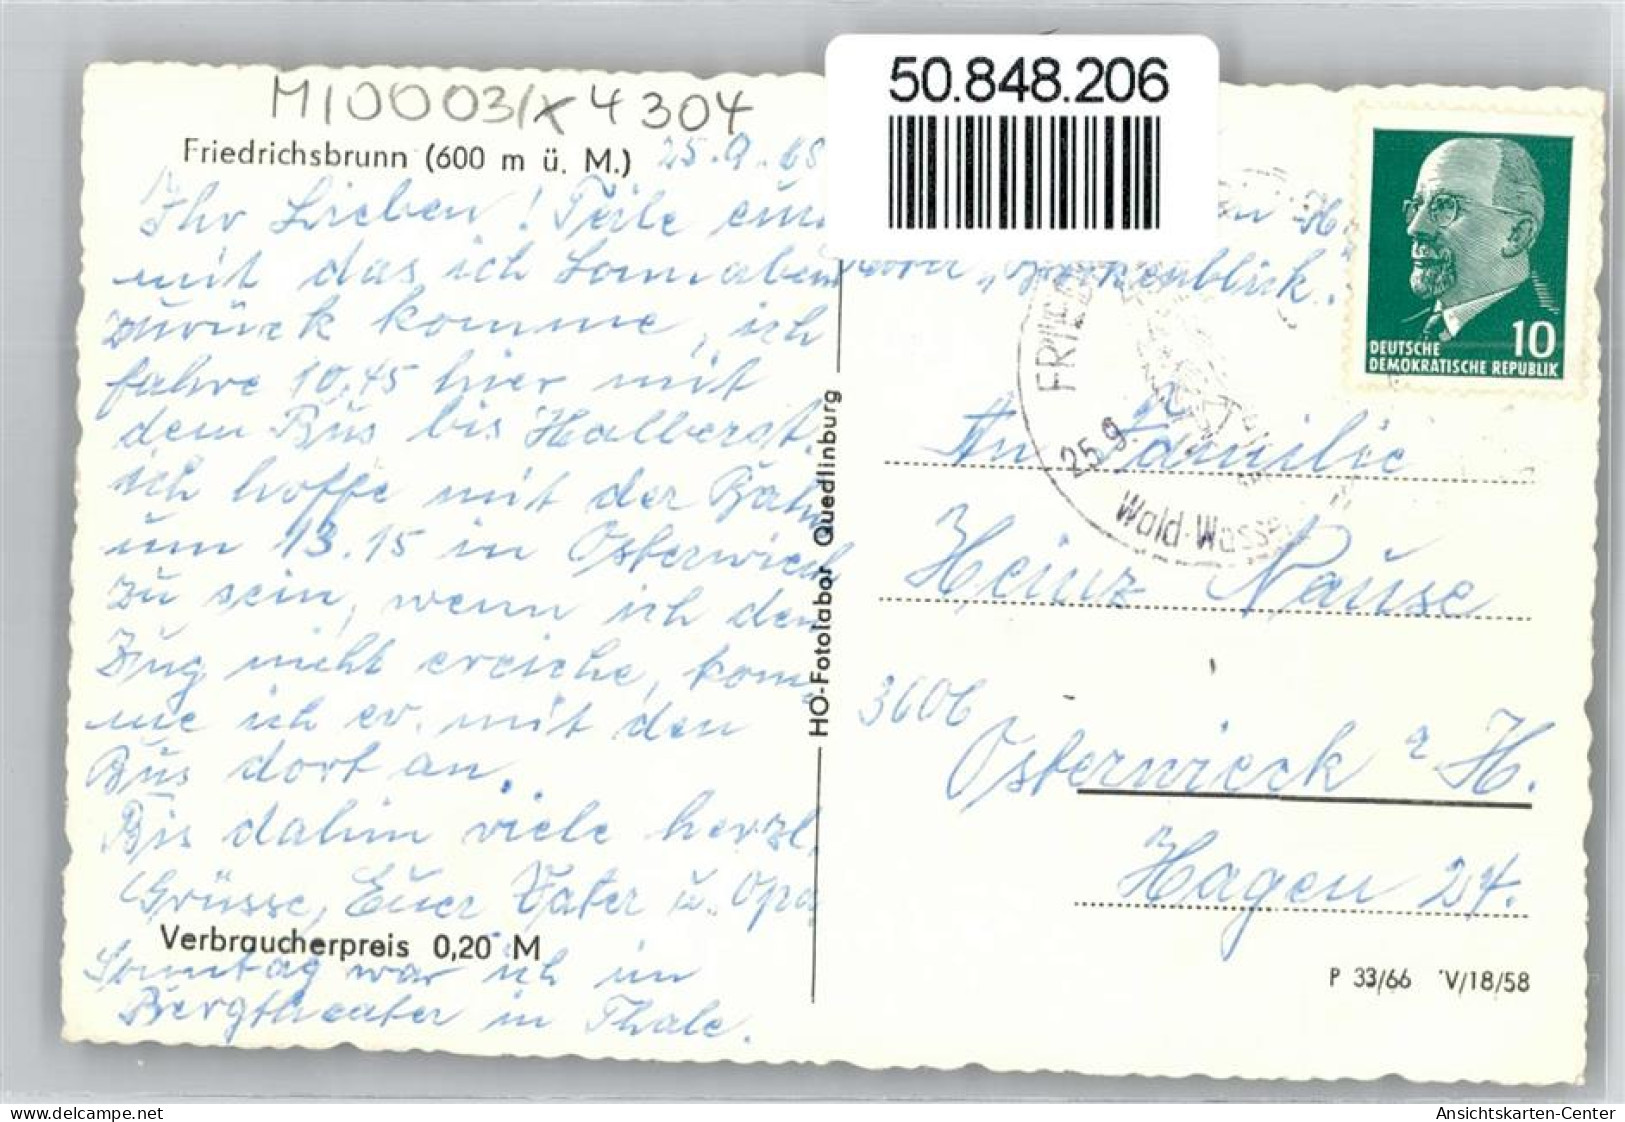 M10003/x 4304
50.848.206
Friedrichsbrunn (600 m ü. M.) 25.9.68
Ihr Lieben! Teile euch
mit das ich Sonnabend
zurück komme, ich
fahre 10,45 hier mit
dem Bus bis Halberst.
ich hoffe mit der Bahn
um 13.15 in Osterwieck
zu sein, wenn ich den
Zug nicht ereiche, kom-
me ich ev. mit den
Bus dort an.
Bis dahin viele herzl.
Grüsse, Euer Vater u. Opa
Verbraucherpreis 0,20 M
Sonntag war ich im
Bergtheater in Thale.
HO-Fotolabor Quedlinburg
DEUTSCHE 10
DEMOKRATISCHE REPUBLIK
25.9.
Wald-Wasse
An Familie
Heinz Nause
3606
Osterwieck a H.
Hagen 24.
P 33/66 V/18/58
Ansichtskarten-Center
www.delcampe.net